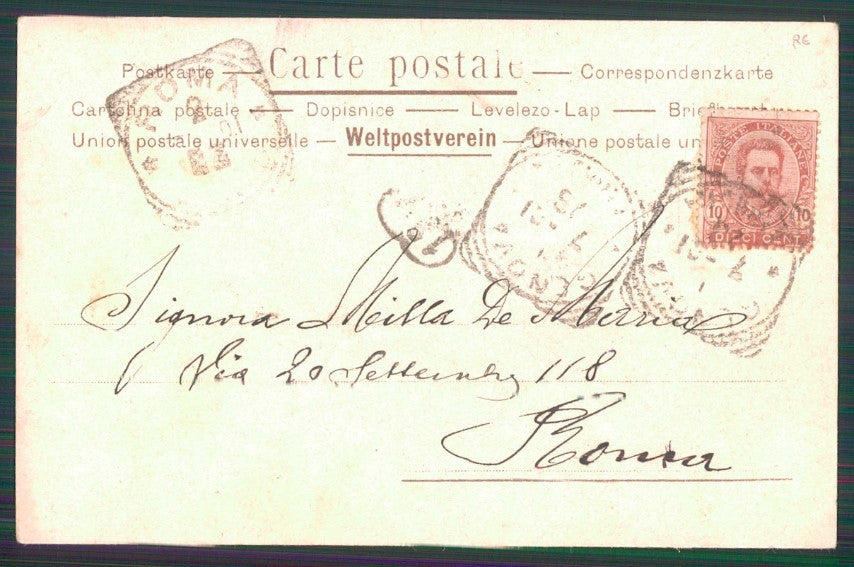 RE
Postkarte — Carte postale — Correspondenzkarte
Cartolina postale — Dopisnice — Levelezo-Lap —
Union postale universelle — Weltpostverein — Unione postale un
POSTE ITALIANE
10 10
DIECI CENT
ROMA
GENOVA
Signora Milla De Maria
Via 20 Settembre 118
Roma